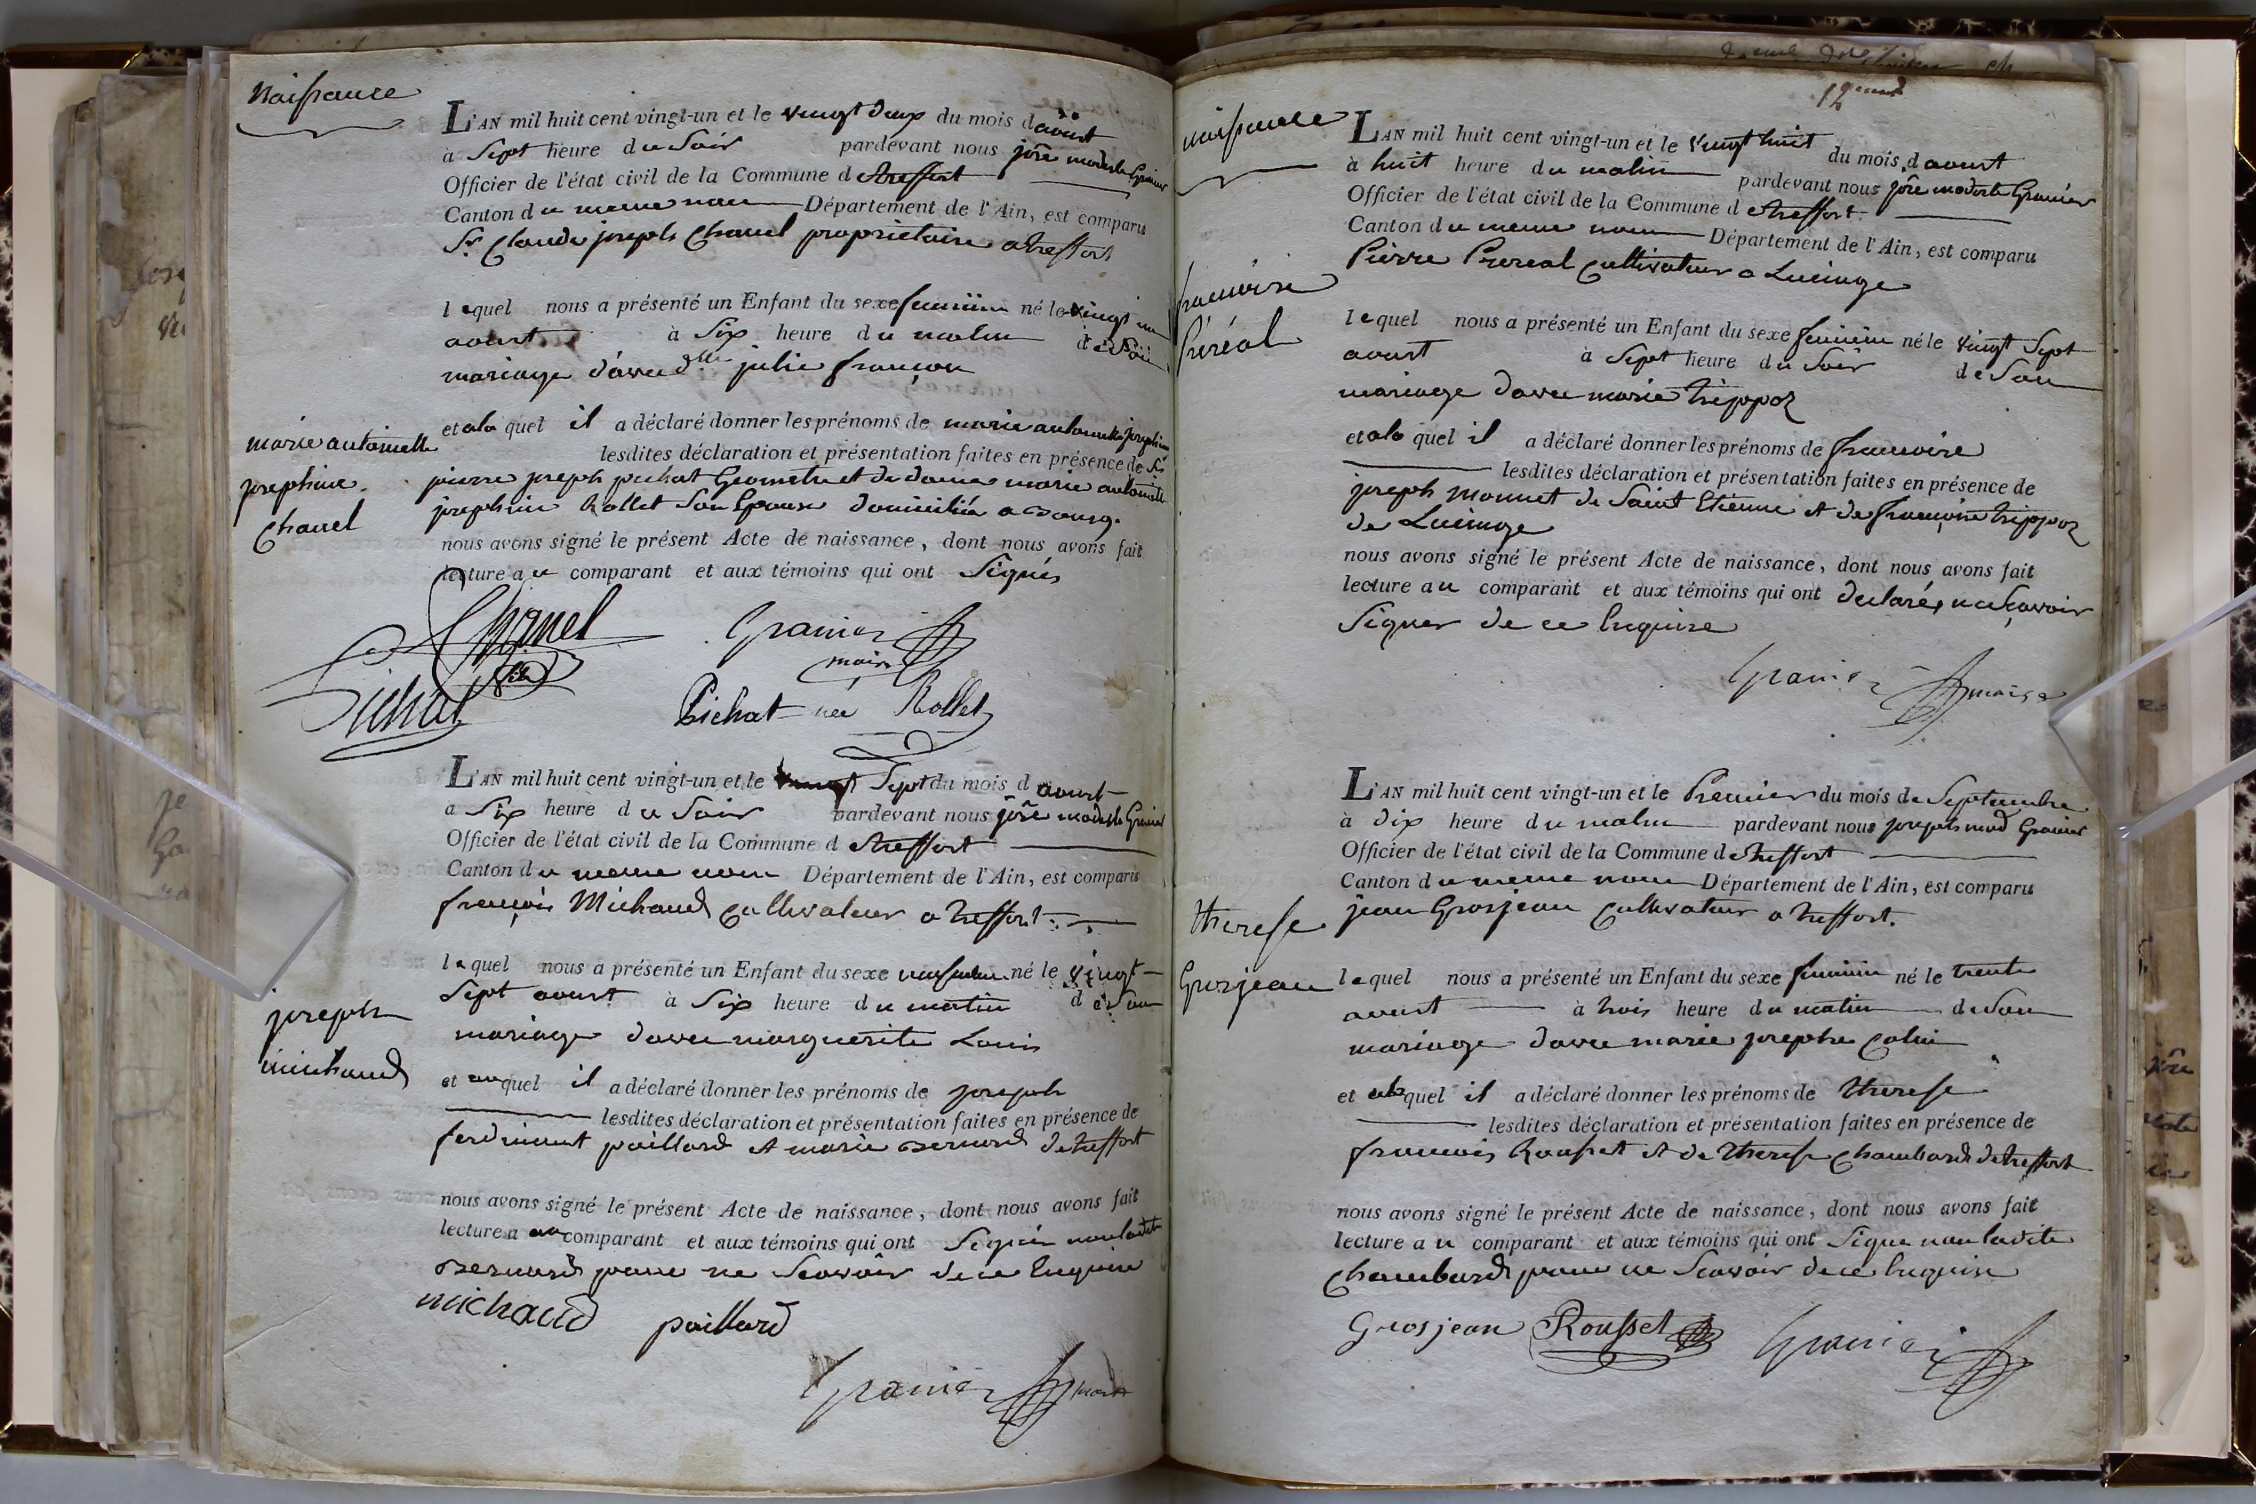 Naissance
L'AN mil huit cent vingt-un et le vingt deux du mois d'aoust
à Sept heure du Soir pardevant nous jph modeste Granier
Officier de l'état civil de la Commune de treffort
Canton du meme nom Département de l'Ain, est comparu
Sr Claude joseph Chanel proprietaire a treffort
lequel nous a présenté un Enfant du sexe feminin né le vingt un
aoust à Six heure du matin de Son
mariage d'avec dlle julie françon
et a la quel il a déclaré donner les prénoms de marie antoinette josephine
lesdites déclaration et présentation faites en présence de Sr
marie antoinette
josephine
Chanel
pierre joseph pichat Geometre et de dame marie antoinette
josephine Rollet Son Epouse domiciliés a Bourg.
nous avons signé le présent Acte de naissance, dont nous avons fait
lecture au comparant et aux témoins qui ont Signés
Chanel
Granier
maire
Pichat
Pichat née Rollet
L'AN mil huit cent vingt-un et le vingt Sept du mois d aoust
a Six heure du Soir pardevant nous jph modeste Granier
Officier de l'état civil de la Commune de treffort
Canton du meme nom Département de l'Ain, est comparu
françois Michaud Cultivateur a treffort
lequel nous a présenté un Enfant du sexe masculin né le vingt
Sept aoust à Six heure du matin de Son
joseph
michaud
mariage davec marguerite Louis
et au quel il a déclaré donner les prénoms de joseph
lesdites déclaration et présentation faites en présence de
ferdinant paillard et marie Bernard de treffort
nous avons signé le présent Acte de naissance, dont nous avons fait
lecture a au comparant et aux témoins qui ont Signés non ladite
Bernard pour ne Scavoir de ce Enquise
michaud paillard
Granier maire
naissance
L'AN mil huit cent vingt-un et le vingt huit du mois d aoust
à huit heure du matin pardevant nous jph modeste Granier
Officier de l'état civil de la Commune de treffort
Canton du meme nom Département de l'Ain, est comparu
Pierre Prereal Cultivateur a Lucinge
francoise
Préréal
lequel nous a présenté un Enfant du sexe feminin né le vingt Sept
aoust à Sept heure du Soir de Son
mariage davec marie trippoz
et a la quel il a déclaré donner les prénoms de francoise
lesdites déclaration et présentation faites en présence de
joseph monnet de Saint Etienne et de françoise trippoz
de Lucinge
nous avons signé le présent Acte de naissance, dont nous avons fait
lecture au comparant et aux témoins qui ont declarés ne Scavoir
Signer de ce Enquise
Granier maire
L'AN mil huit cent vingt-un et le Premier du mois de Septembre
à dix heure du matin pardevant nous joseph mod Granier
Officier de l'état civil de la Commune de treffort
Canton du meme nom Département de l'Ain, est comparu
jean Grosjean Cultivateur a treffort.
therese
Grosjean
lequel nous a présenté un Enfant du sexe feminin né le trente
aoust à trois heure du matin de Son
mariage davec marie josephe Colin
et a la quel il a déclaré donner les prénoms de therese
lesdites déclaration et présentation faites en présence de
francois Rousset et de therese Chambard de treffort
nous avons signé le présent Acte de naissance, dont nous avons fait
lecture au comparant et aux témoins qui ont Signe non ladite
Chambard pour ne Scavoir de ce Enquise
Grosjean Rousset Granier